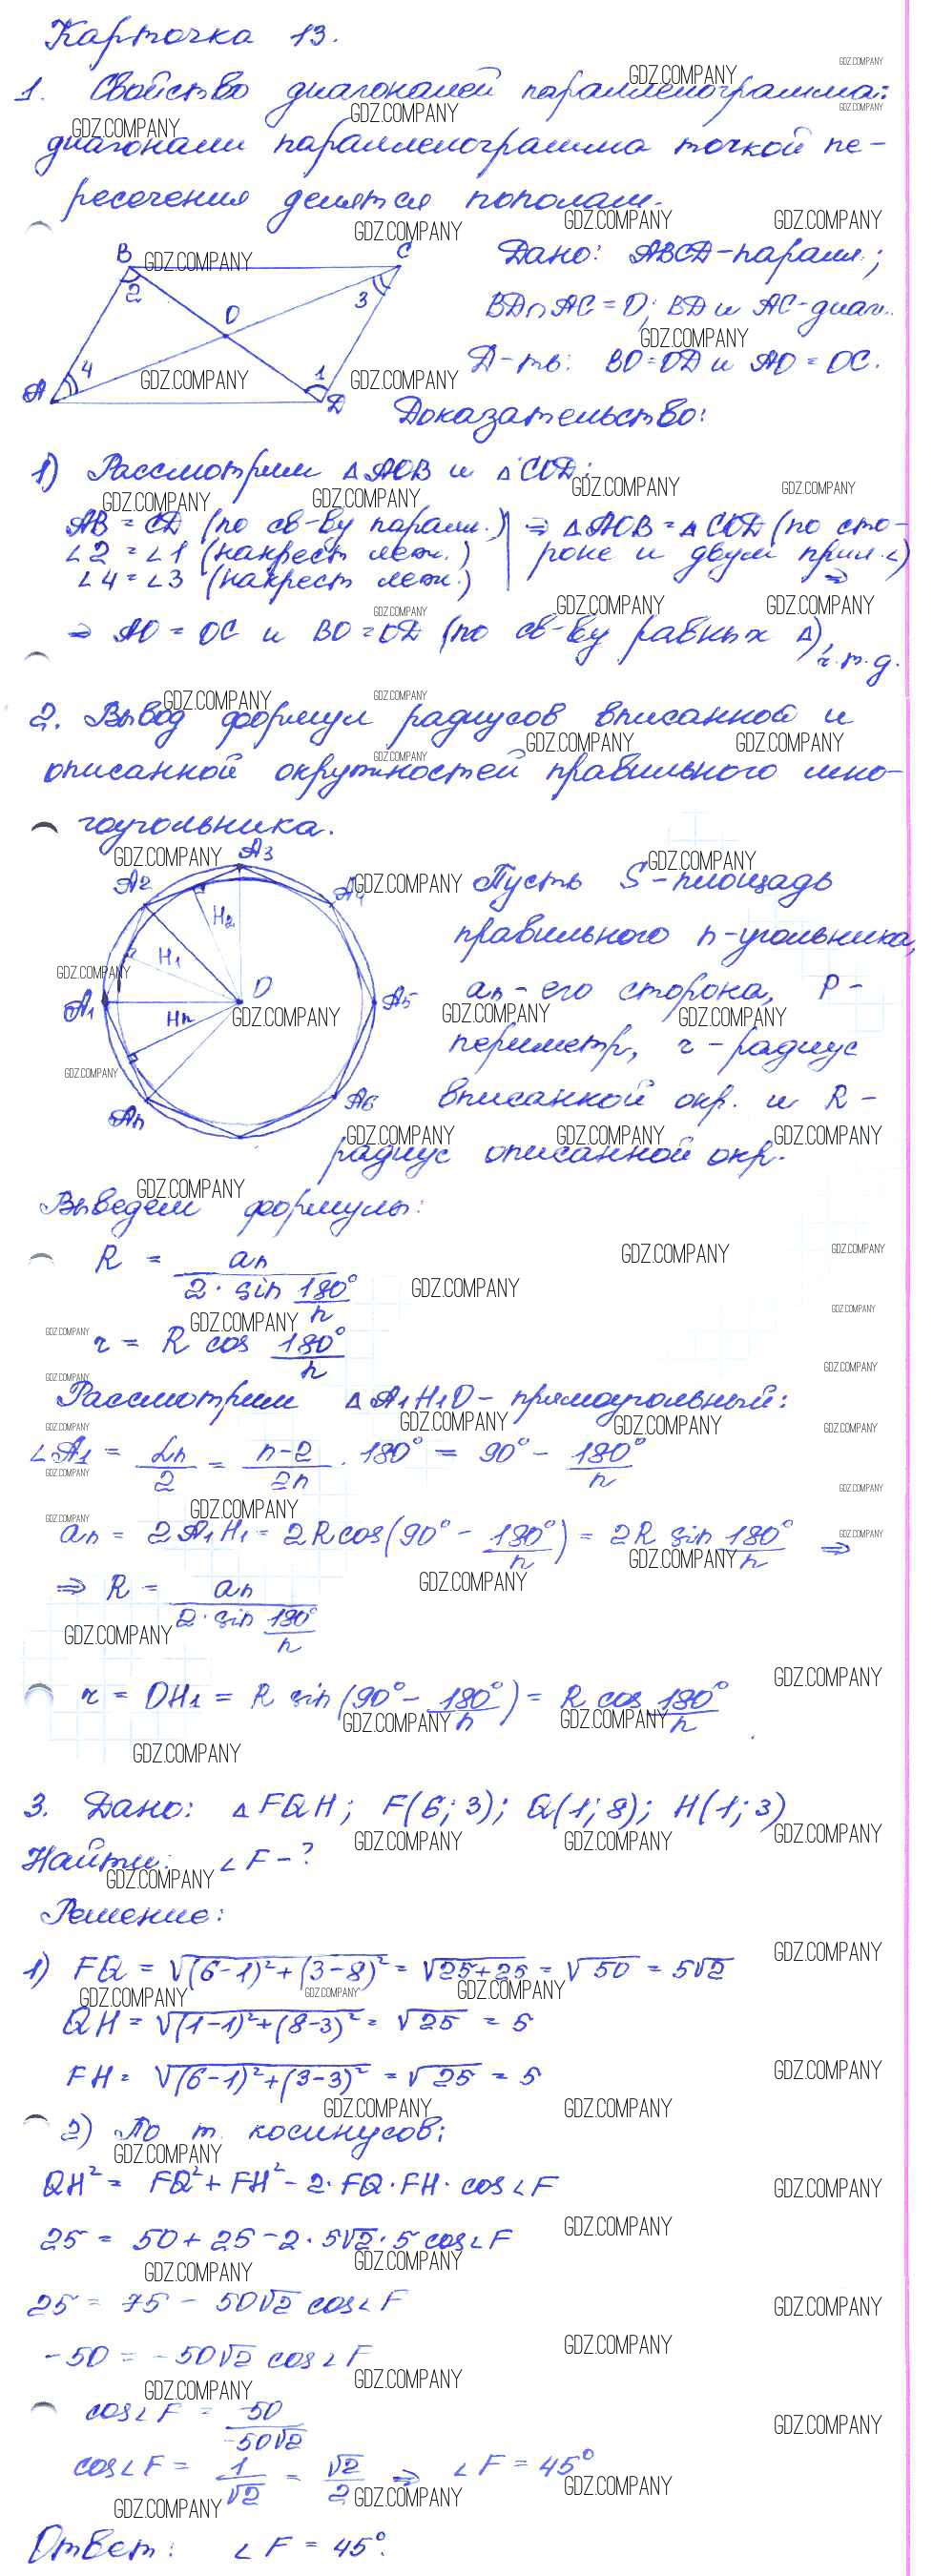 Карточка 13.
1. Свойство диагоналей параллелограмма:
диагонали параллелограмма точкой пе-
ресечения делятся пополам.
B C 2 3 O 4 1 A D
Дано: ABCD-парал.;
BD∩AC=O; BD и AC-диаг.
Д-ть: BO=OD и AO=OC.
Доказательство:
1) Рассмотрим △AOB и △COD:
AB = CD (по св-ву парал.) ⇒ △AOB = △COD (по сто-
∠2 = ∠1 (накрест леж.) роне и двум прил. ∠)
∠4 = ∠3 (накрест леж.) ⇒
⇒ AO = OC и BO = OD (по св-ву равных △), ч.т.д.
2. Вывод формул радиусов вписанной и
описанной окружностей правильного мно-
гоугольника.
A3 A2 A4 H2 H1 O A1 A5 Hn An A6
Пусть S-площадь
правильного n-угольника,
an - его сторона, P -
периметр, r - радиус
вписанной окр. и R -
радиус описанной окр.
Выведем формулы:
R = an / (2 · sin 180°/n)
r = R cos 180°/n
Рассмотрим △A1H1O - прямоугольный:
∠A1 = αn/2 = (n-2)/2n · 180° = 90° - 180°/n
an = 2A1H1 = 2R cos(90° - 180°/n) = 2R sin 180°/n ⇒
⇒ R = an / (2 · sin 180°/n)
r = OH1 = R sin(90° - 180°/n) = R cos 180°/n
3. Дано: △FQH; F(6;3); Q(1;8); H(1;3)
Найти: ∠F - ?
Решение:
1) FQ = √((6-1)²+(3-8)²) = √(25+25) = √50 = 5√2
QH = √((1-1)²+(8-3)²) = √25 = 5
FH = √((6-1)²+(3-3)²) = √25 = 5
2) По т. косинусов:
QH² = FQ² + FH² - 2·FQ·FH·cos∠F
25 = 50 + 25 - 2·5√2·5 cos∠F
25 = 75 - 50√2 cos∠F
-50 = -50√2 cos∠F
cos∠F = -50 / -50√2
cos∠F = 1/√2 = √2/2 ⇒ ∠F = 45°
Ответ: ∠F = 45°.
GDZ.COMPANY